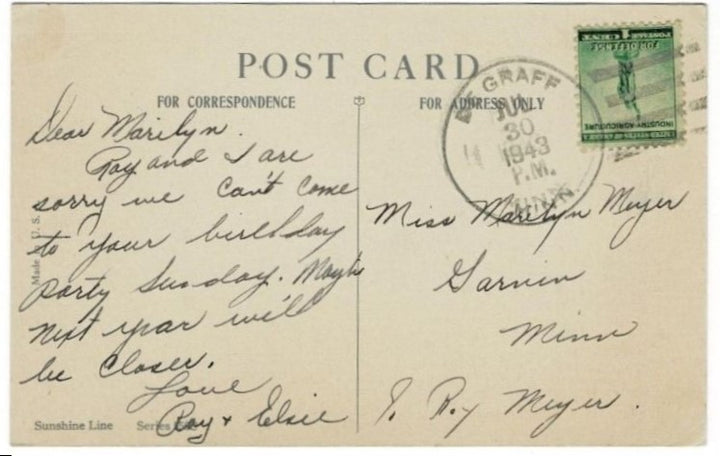 POST CARD
FOR CORRESPONDENCE
FOR ADDRESS ONLY
Dear Marilyn.
Roy and I are
sorry we can't come
to your birthday
party Sunday. Maybe
next year we'll
be closer.
Love
Roy + Elsie
Made in U. S.
Sunshine Line Series
DE GRAFF
JUL
30
1943
P.M.
MINN.
UNITED STATES OF AMERICA
INDUSTRY-AGRICULTURE
FOR DEFENSE
POSTAGE 1 CENT
Miss Marilyn Meyer
Garvin
Minn
Roy Meyer.